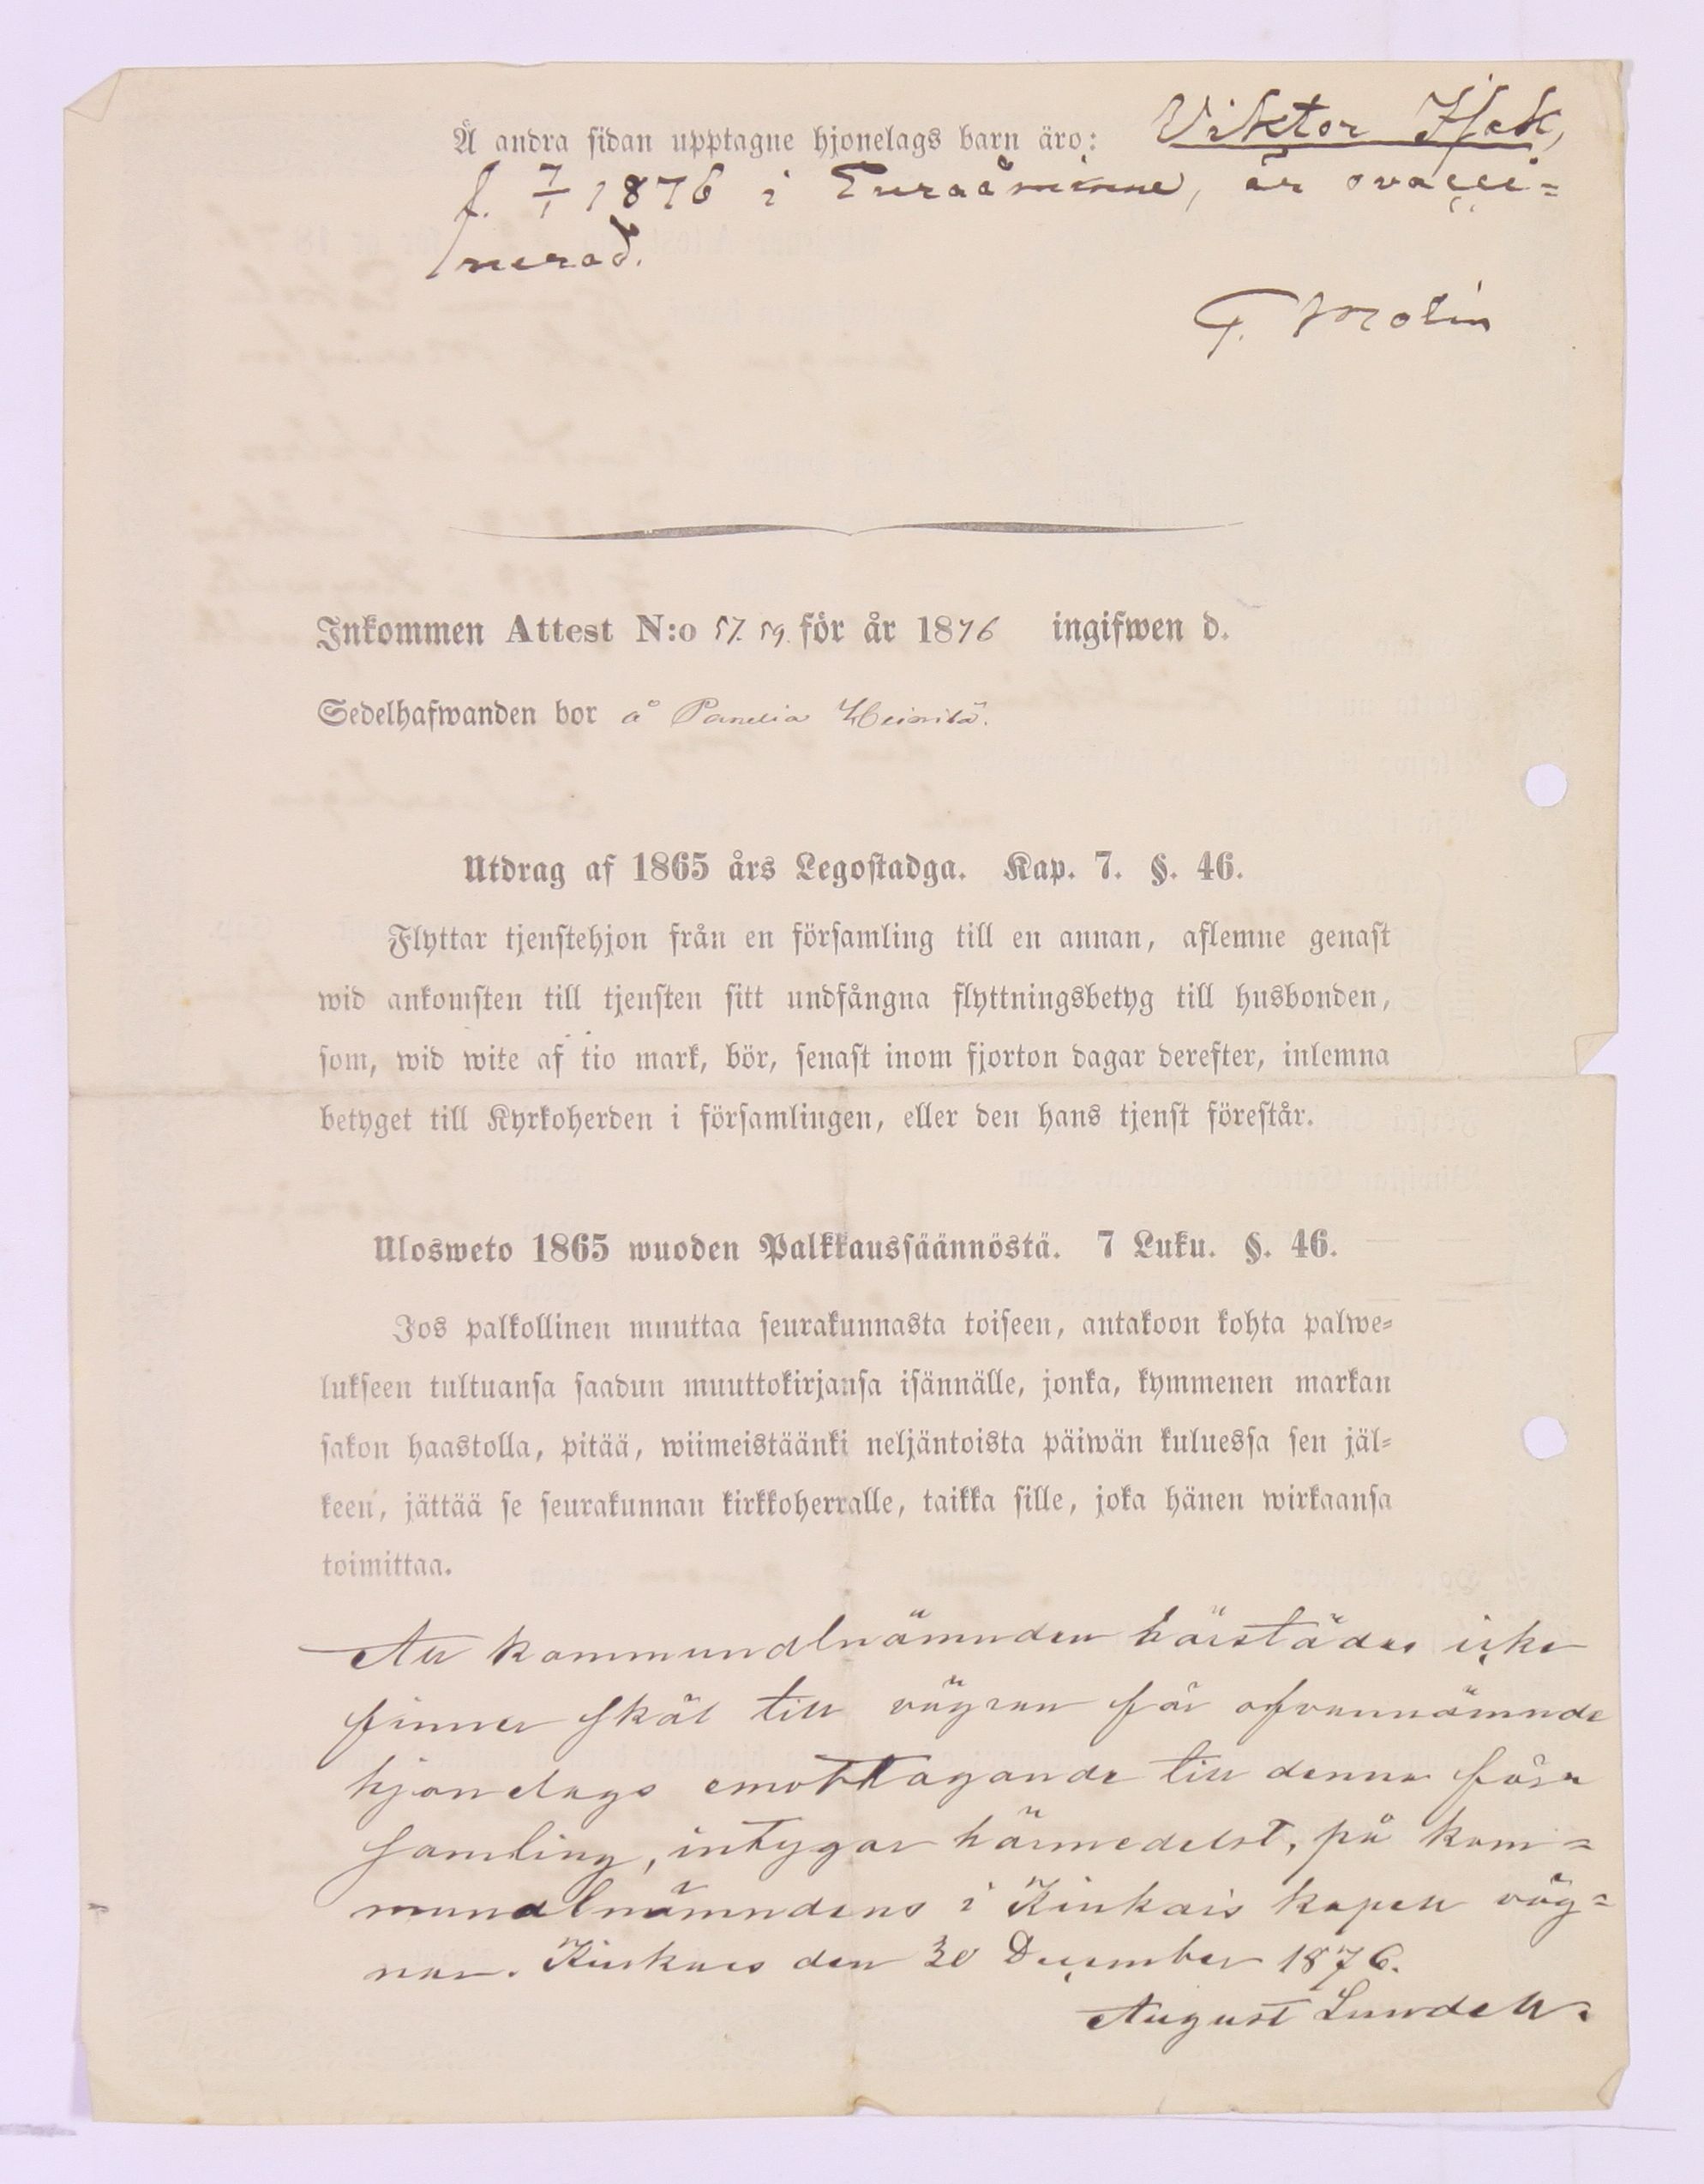 Å andra sidan upptagne hjonelags barn äro: Viktor Isak,
f. 7/1 1876 i Euraåminne, är ovacci=
nerad.
G. Molin
Inkommen Attest N:o 57. 59. för år 1876 ingifwen d.
Sedelhafwanden bor å Panelia Heinilä.
Utdrag af 1865 års Legostadga. Kap. 7. §. 46.
Flyttar tjenstehjon från en församling till en annan, aflemne genast
wid ankomsten till tjensten sitt undfångna flyttningsbetyg till husbonden,
som, wid wite af tio mark, bör, senast inom fjorton dagar derefter, inlemna
betyget till Kyrkoherden i församlingen, eller den hans tjenst förestår.
Ulosweto 1865 wuoden Palkkaussäännöstä. 7 Luku. §. 46.
Jos palkollinen muuttaa seurakunnasta toiseen, antakoon kohta palwe=
lukseen tultuansa saadun muuttokirjansa isännälle, jonka, kymmenen markan
sakon haastolla, pitää, wiimeistäänki neljäntoista päiwän kuluessa sen jäl=
keen, jättää se seurakunnan kirkkoherralle, taikka sille, joka hänen wirkaansa
toimittaa.
Att kommunalnämnden härstädes icke
finner skäl till vägran för ofvannämnde
hjonelags emottagande till denna för
samling, intygar härmedelst, på kom=
munalnämndens i Kiukais kapell väg=
nar. Kiukais den 30 December 1876.
August Lundell.